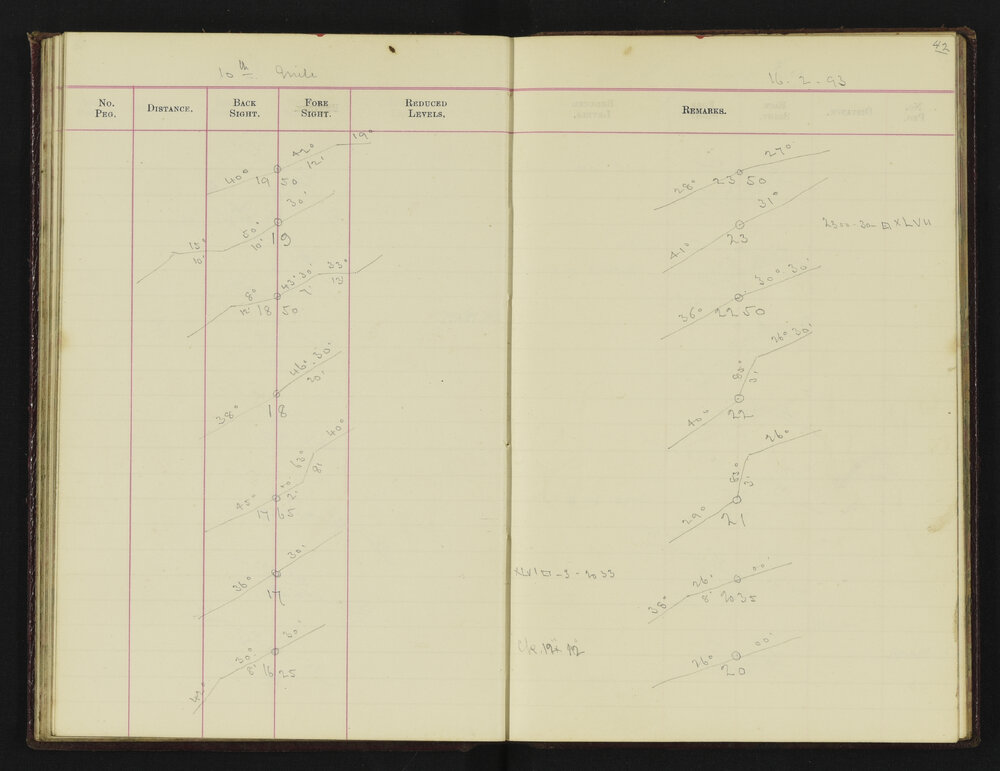 10th Mile
No. Peg.
Distance.
Back Sight.
Fore Sight.
Reduced Levels.
40° 42° 12' 19°
19 50
15° 10' 50° 10' 30°
19
8° 12' 43° 30' 7' 33° 12'
18 50
38° 46° 30' 30'
18
45° 2' 63° 8' 40°
17 65
36° 30'
17
42° 30° 8' 30'
16 25
42
16. 2. 93
Remarks.
28° 27°
23 50
41° 31°
23
2300-30- □ XLVII
36° 30° 30'
22 50
40° 85° 3' 26° 30'
22
29° 83° 3' 26°
21
XLVI □ -3- 2033
38° 26° 8'
20 35
26°
20